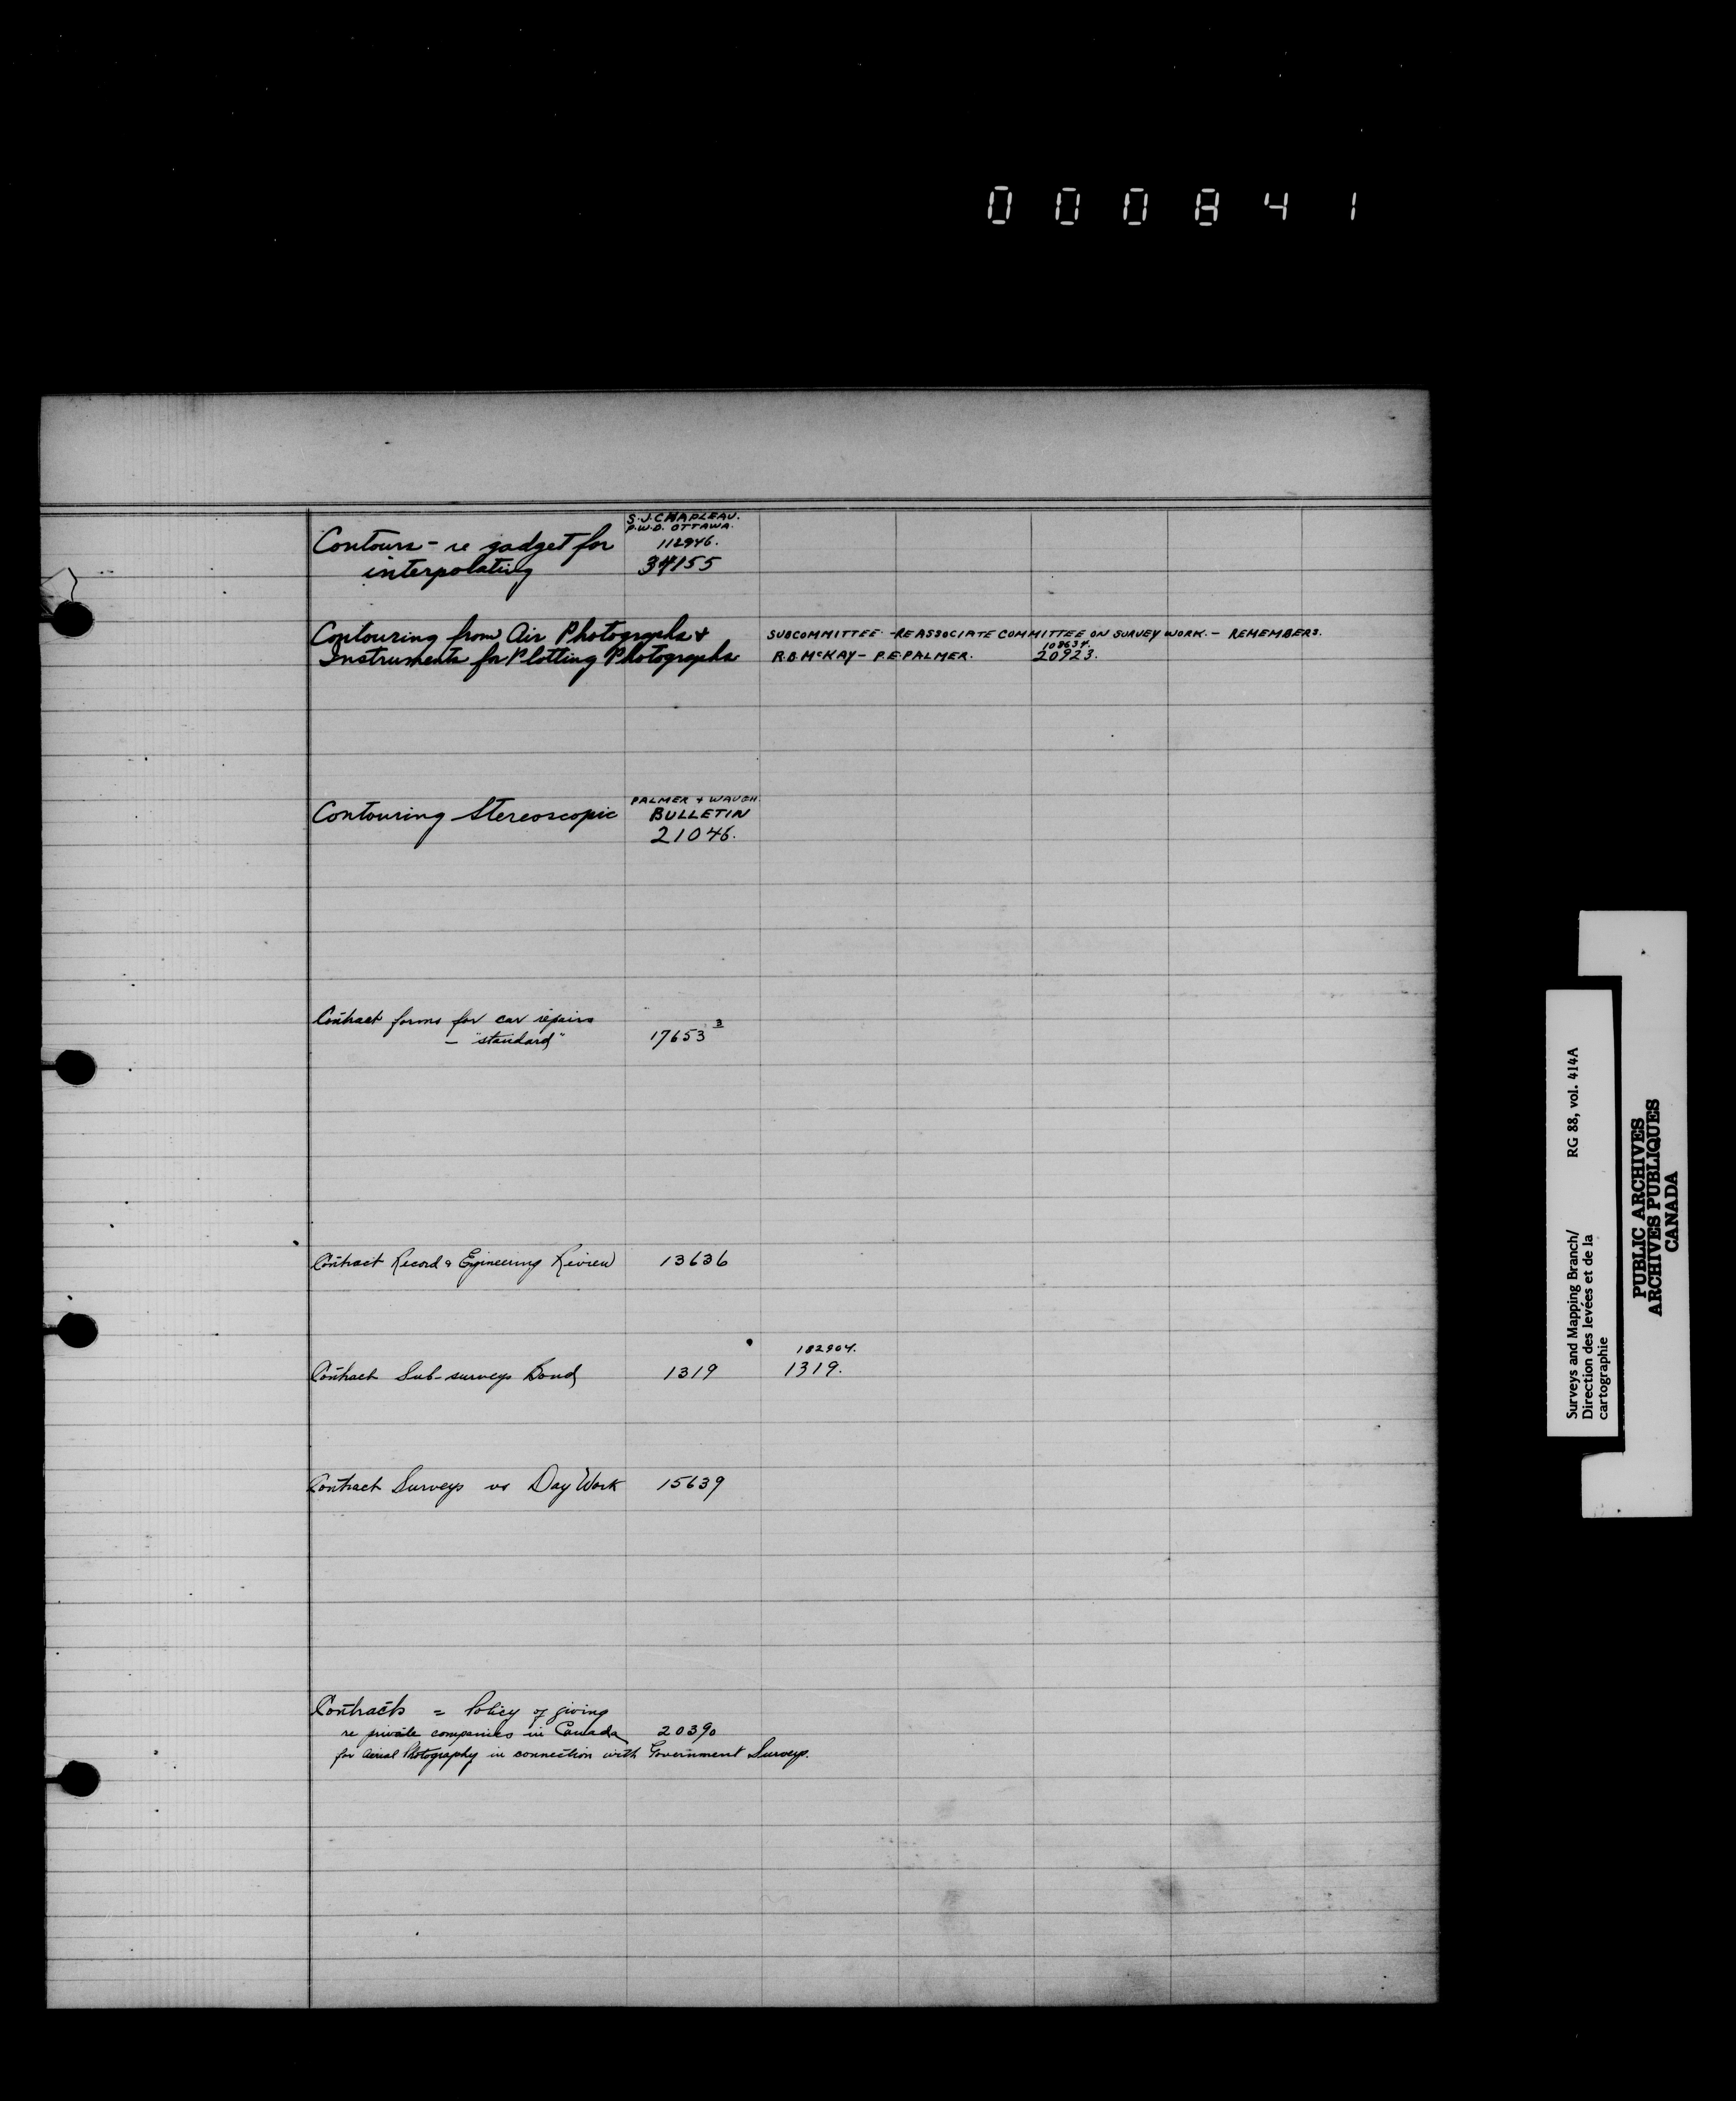 000841
S.J. CHAPLEAU.
P.W.D. OTTAWA.
Contours - re gadget for
112946.
interpolating
34155
Contouring from Air Photographs &
SUBCOMMITTEE - RE ASSOCIATE COMMITTEE ON SURVEY WORK. - RE MEMBERS.
Instruments for Plotting Photographs
R.B. McKAY - P.E. PALMER.
108634.
20923.
PALMER & WAUGH.
Contouring Stereoscopic
BULLETIN
21046.
Contract forms for car repairs
- "standard"
17653 3
Contract Record & Engineering Review 13636
182904.
Contract Sub-surveys Bond 1319 1319.
Contract Surveys vs Day Work 15639
Contracts = Policy of giving
re private companies in Canada 20390
for Aerial Photography in connection with Government Surveys.
Surveys and Mapping Branch/ RG 88, vol. 414A
Direction des levées et de la
cartographie
PUBLIC ARCHIVES
ARCHIVES PUBLIQUES
CANADA